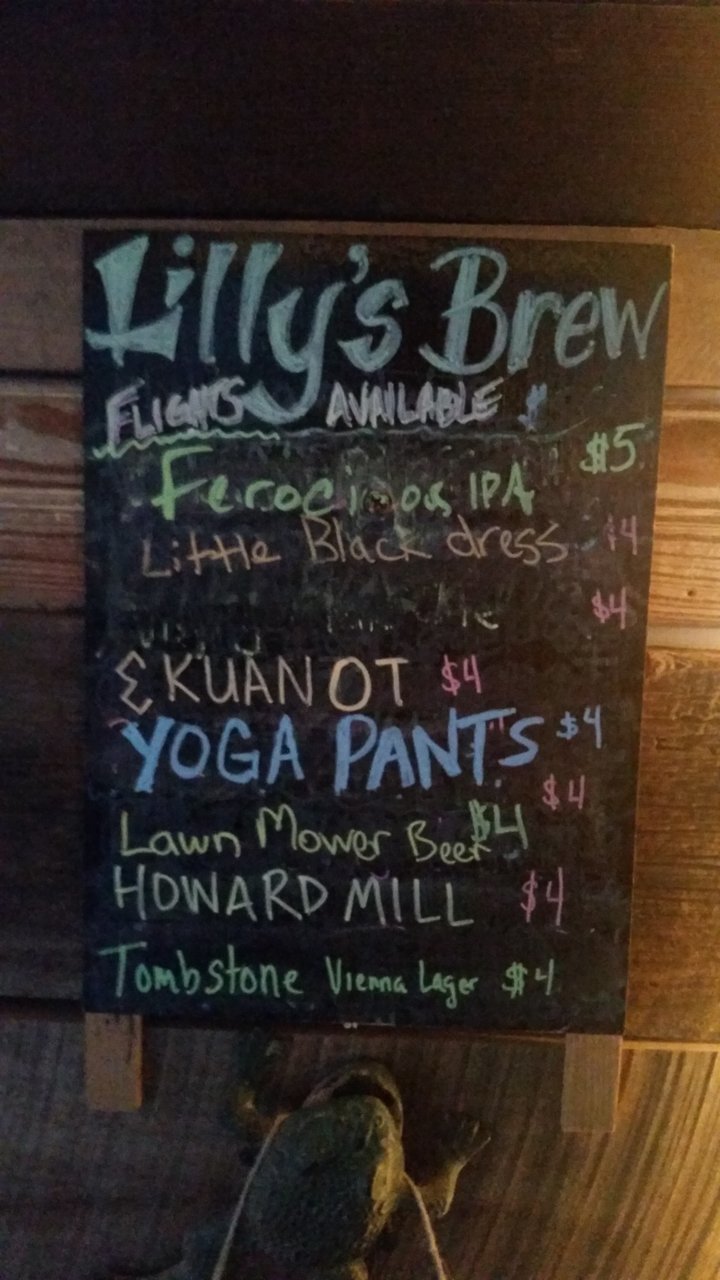 Lilly's Brew
FLIGHTS AVAILABLE
Ferocious IPA $5
Little Black dress $4
$4
EKUANOT $4
YOGA PANTS $4
$4
Lawn Mower Beer $4
HOWARD MILL $4
Tombstone Vienna Lager $4